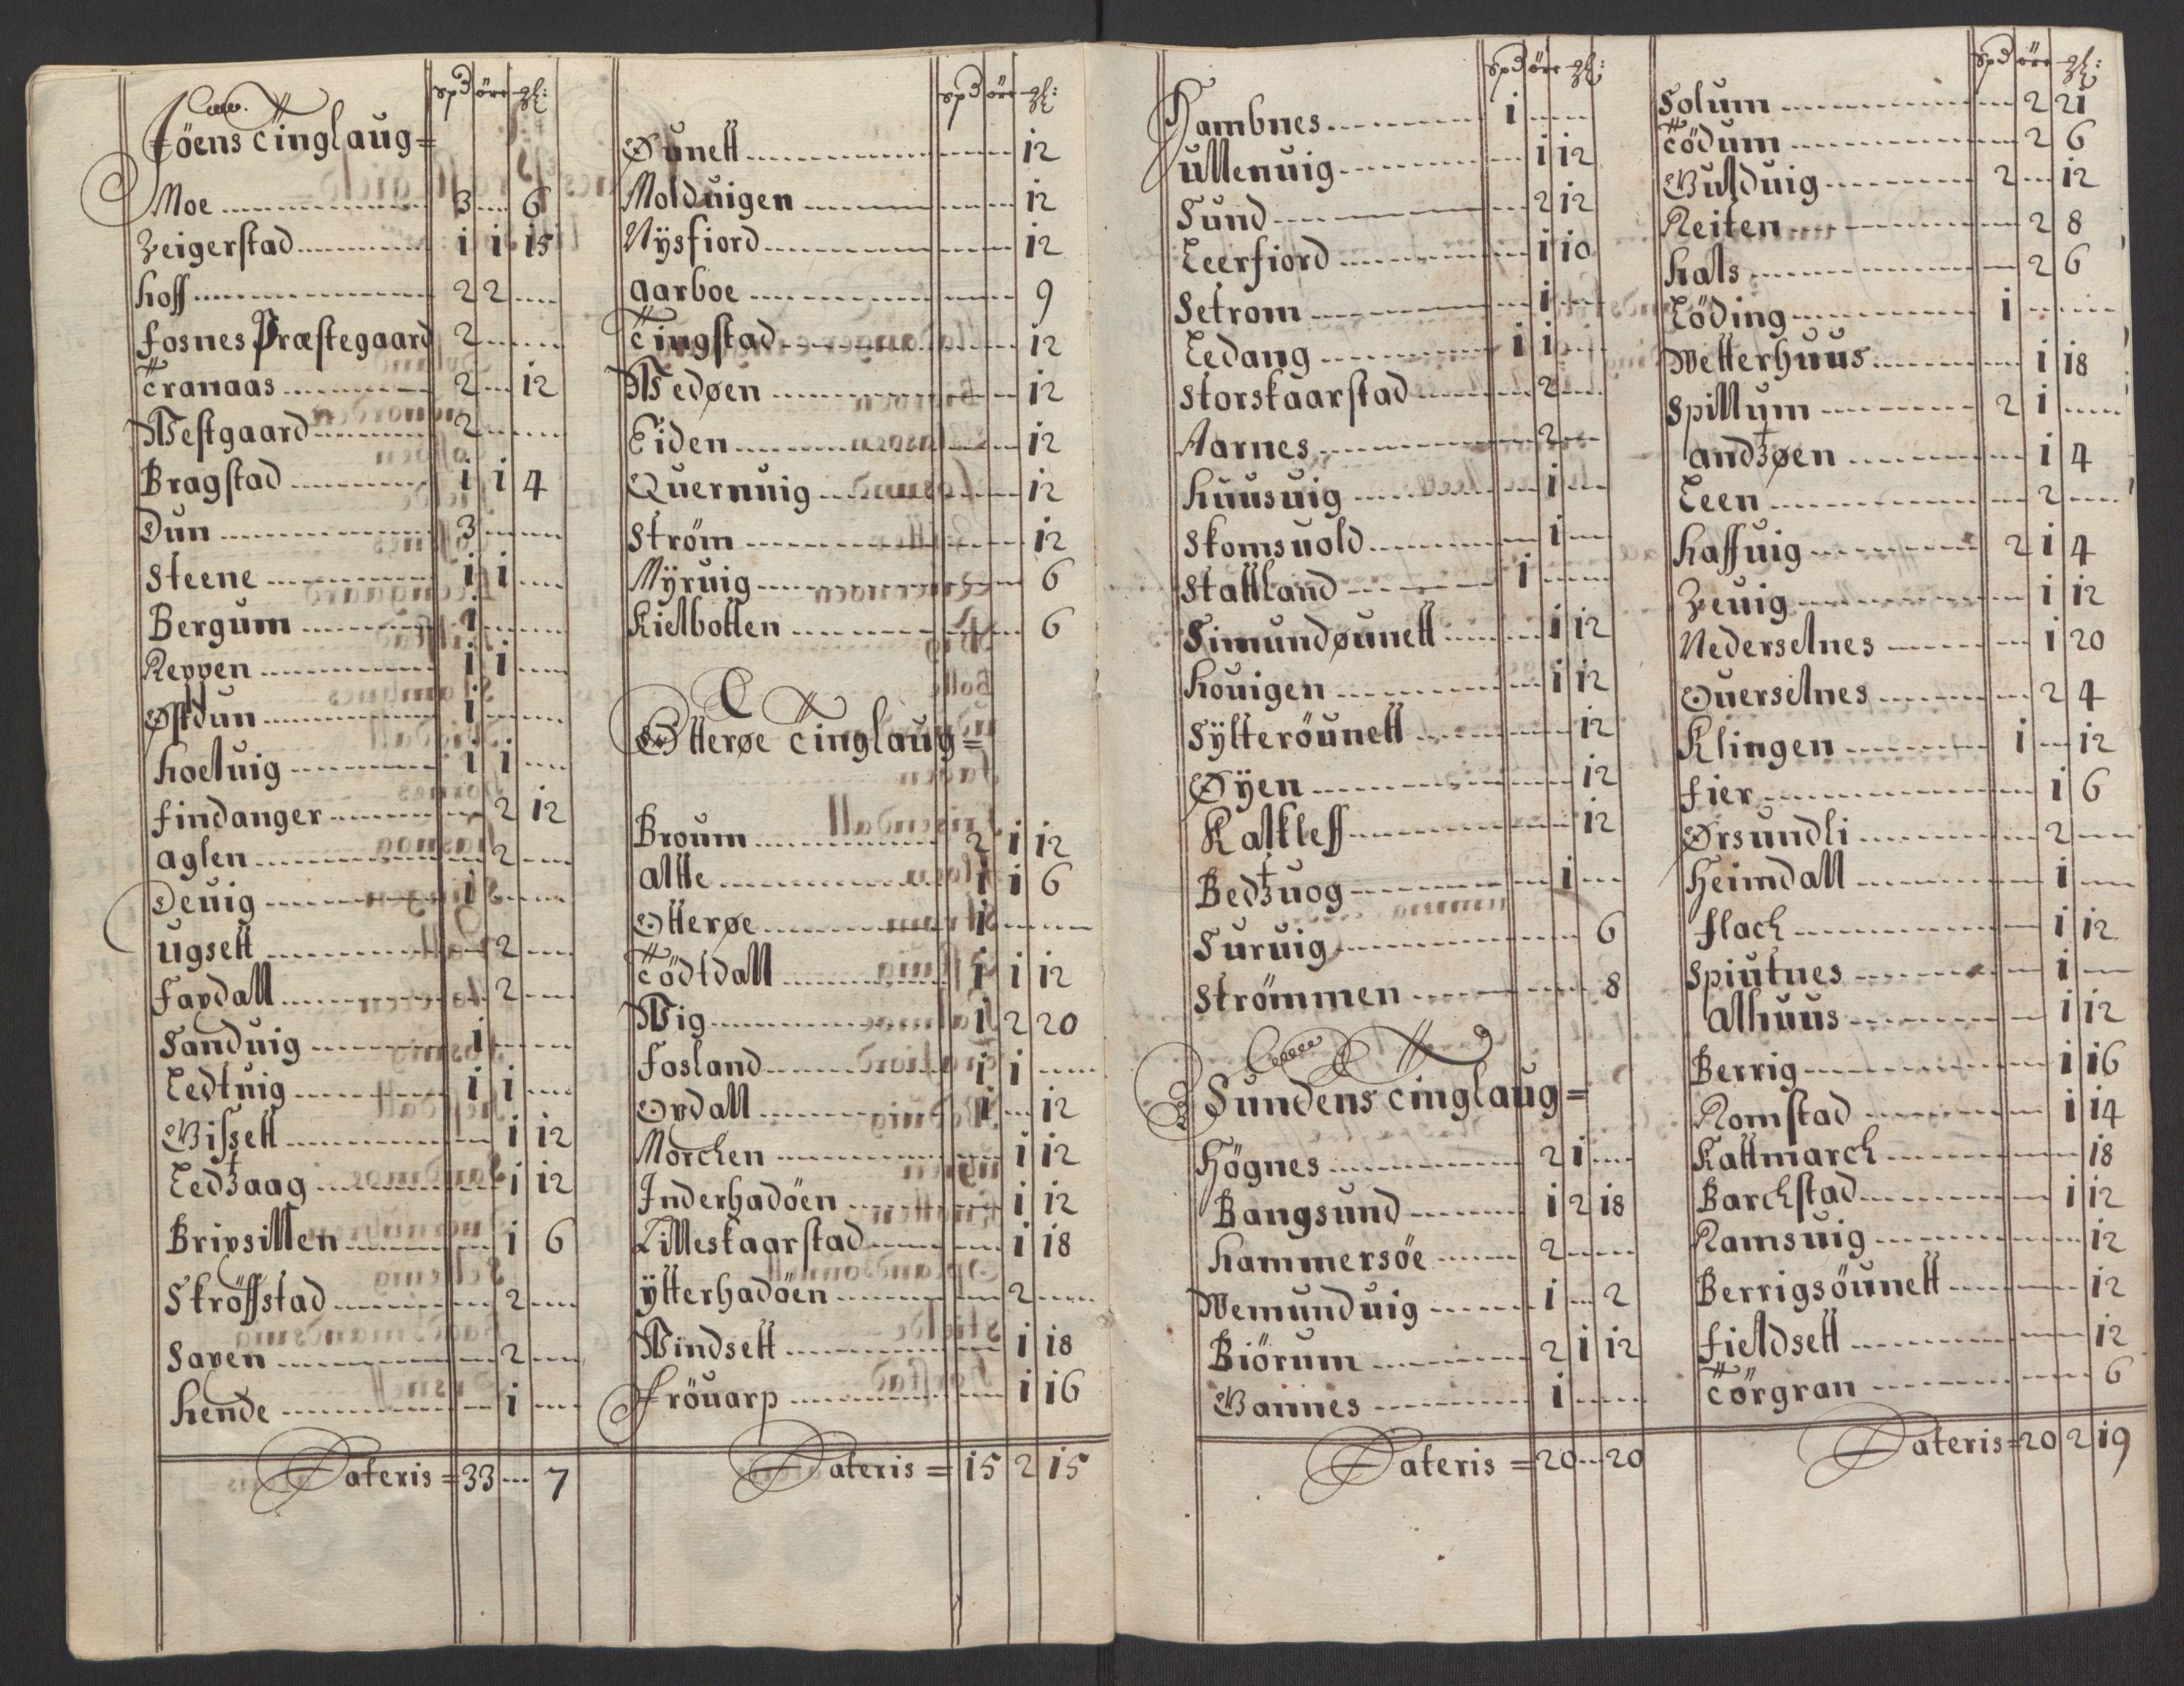 spd öre ₰:
Föens Tinglaug=
Moe 3 6
Zeigerstad 1 1 15
Hoff 2 2
Fosnes Præstegaard 2
Tranaas 2 12
Westgaard 2
Bragstad 1 1 4
Dun 3
Steene 1 1
Bergum 1
Reppen 1 1
Østdun 1
Hoeluig 1 1
Findanger 2 12
Aglen 2
Deuig 1
Ugsett 2
Fardall 2
Sanduig 1
Ledtuig 1 1
Bissett 1 12
Ledtzaag 1 12
Bripsillen 1 6
Skröffstad 2
Saren 2
Hende 1
Lateris = 33 7
spd öre ₰:
Øunett 12
Molduigen 12
Nysfiord 12
Aarboe 9
Tingstad 12
Wedøen 12
Eiden 12
Quernuig 12
Ström 12
Myruig 6
Kielbotten 6
Otterøe Tinglaug=
Broum 2 1 12
Alte 1 1 6
Otterøe 1
Tödtdall 1 1 12
Wig 1 2 20
Fosland 1 1
Opdall 1 12
Morchen 1 12
Inderhadöen 1 12
Lilleskaarstad 1 18
Ytterhadöen 2
Windsett 1 18
Fröuarp 1 16
Lateris = 15 2 15
spd öre ₰:
Hambnes 1
Ullenuig 1 12
Sund 2 12
Leerfiord 1 10
Setrom 1
Ledang 1 1
Storskaarstad 2
Aarnes 2
Huusuig 1
Skomsuold 1
Stattland 1
Simundøunett 1 12
Houigen 1 12
Sylterøunett 12
Øyen 12
Kalkleff 12
Bedtzuog 1
Suruig 6
Strömmen 8
Sundens Tinglaug=
Högnes 2 1
Bangsund 1 2 18
Hammersöe 2
Wemunduig 1 2
Biörum 2 1 12
Bannes 1
Lateris = 20 20
spd öre ₰:
Solum 2 21
Tödum 2 6
Bulduig 2 12
Reiten 2 8
Hals 2 6
Löding 1
Wetterhuus 1 18
Spillum 2 1
Andtzøen 1 4
Leen 2
Haffuig 2 1 4
Zeuig 1 12
Nederselnes 1 20
Ouerselnes 2 4
Klingen 1 12
Fier 1 6
Ørsundli 2
Heimdall 1
Flach 1 12
Spiutnes 1
Alhuus 1 12
Berrig 1 16
Romstad 1 14
Kattmarch 18
Barchstad 1 12
Ramsuig 12
Berrigsöunett 12
Fieldsett 12
Törgran 6
Lateris = 20 2 19